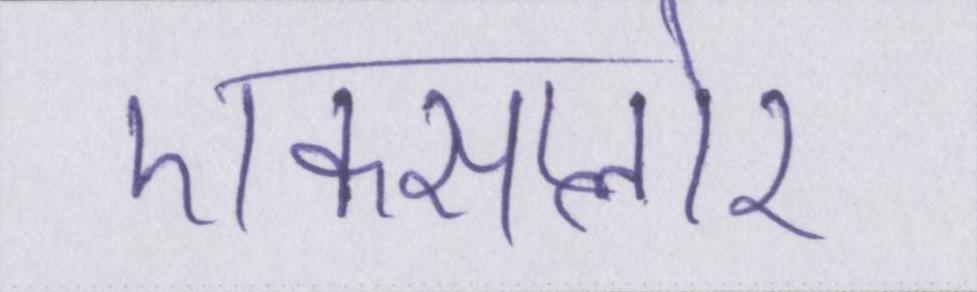 एकसप्लोर